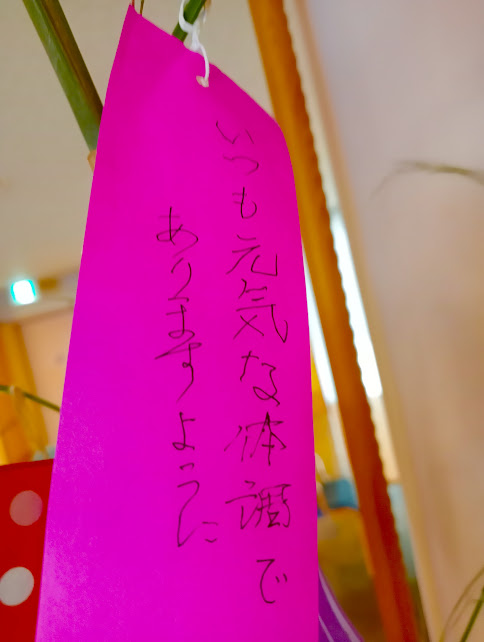 いつも元気な体調で
ありますように